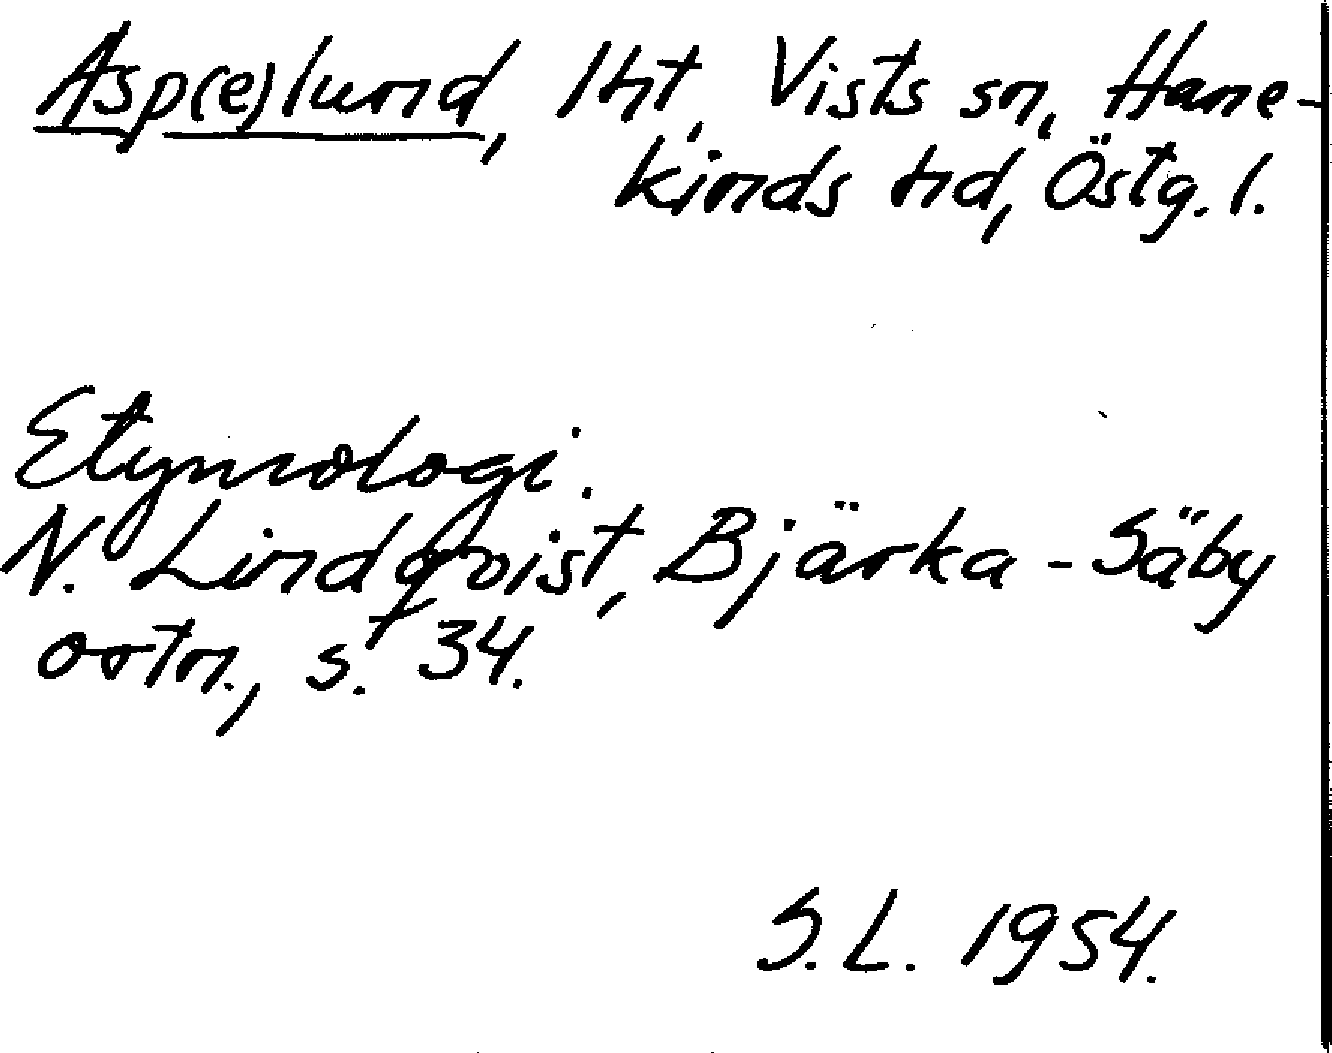 Asp(e)lund, lht, Vists sn, Hane-
kinds hd, Östg. l.
Etymologi.
N. Lindqvist, Bjärka-Säby
ortn., s. 34.
S.L. 1954.